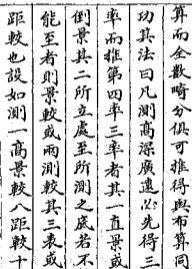 算而全數畸分俱可推得與布算同
功其法曰凡測高深廣遠必先得三
率而推第四率三率者其一直景或
倒景其二所立處至所測之底若不
能至者則景較或兩測較其三表或
距較也設如測一高景較八距較十